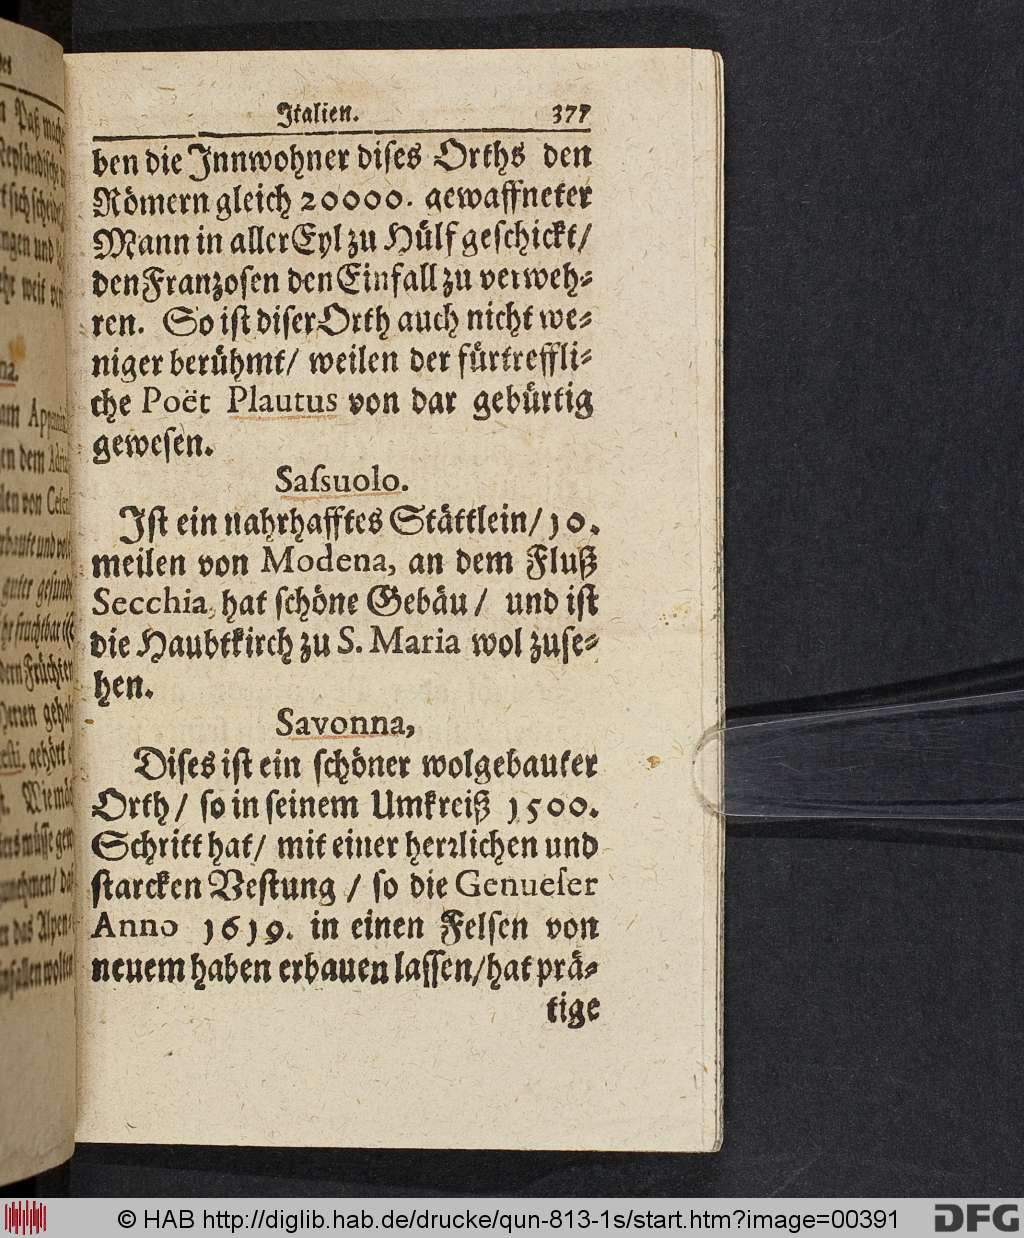 Italien. 377
ben die Innwohner dises Orths den
Römern gleich 20000. gewaffneter
Mann in aller Eyl zu Hülf geschickt/
den Franzosen den Einfall zu verweh-
ren. So ist diser Orth auch nicht we-
niger berühmt/ weilen der fürtreffli-
che Poët Plautus von dar gebürtig
gewesen.
Saſsuolo.
Ist ein nahrhafftes Stättlein/ 10.
meilen von Modena, an dem Fluß
Secchia, hat schöne Gebäu/ und ist
die Haubtkirch zu S. Maria wol zuse-
hen.
Savonna,
Dises ist ein schöner wolgebauter
Orth/ so in seinem Umkreiß 1500.
Schritt hat/ mit einer herrlichen und
starcken Vestung/ so die Genueſer
Anno 1619. in einen Felsen von
neuem haben erbauen lassen/ hat präch-
tige
© HAB http://diglib.hab.de/drucke/qun-813-1s/start.htm?image=00391
DFG